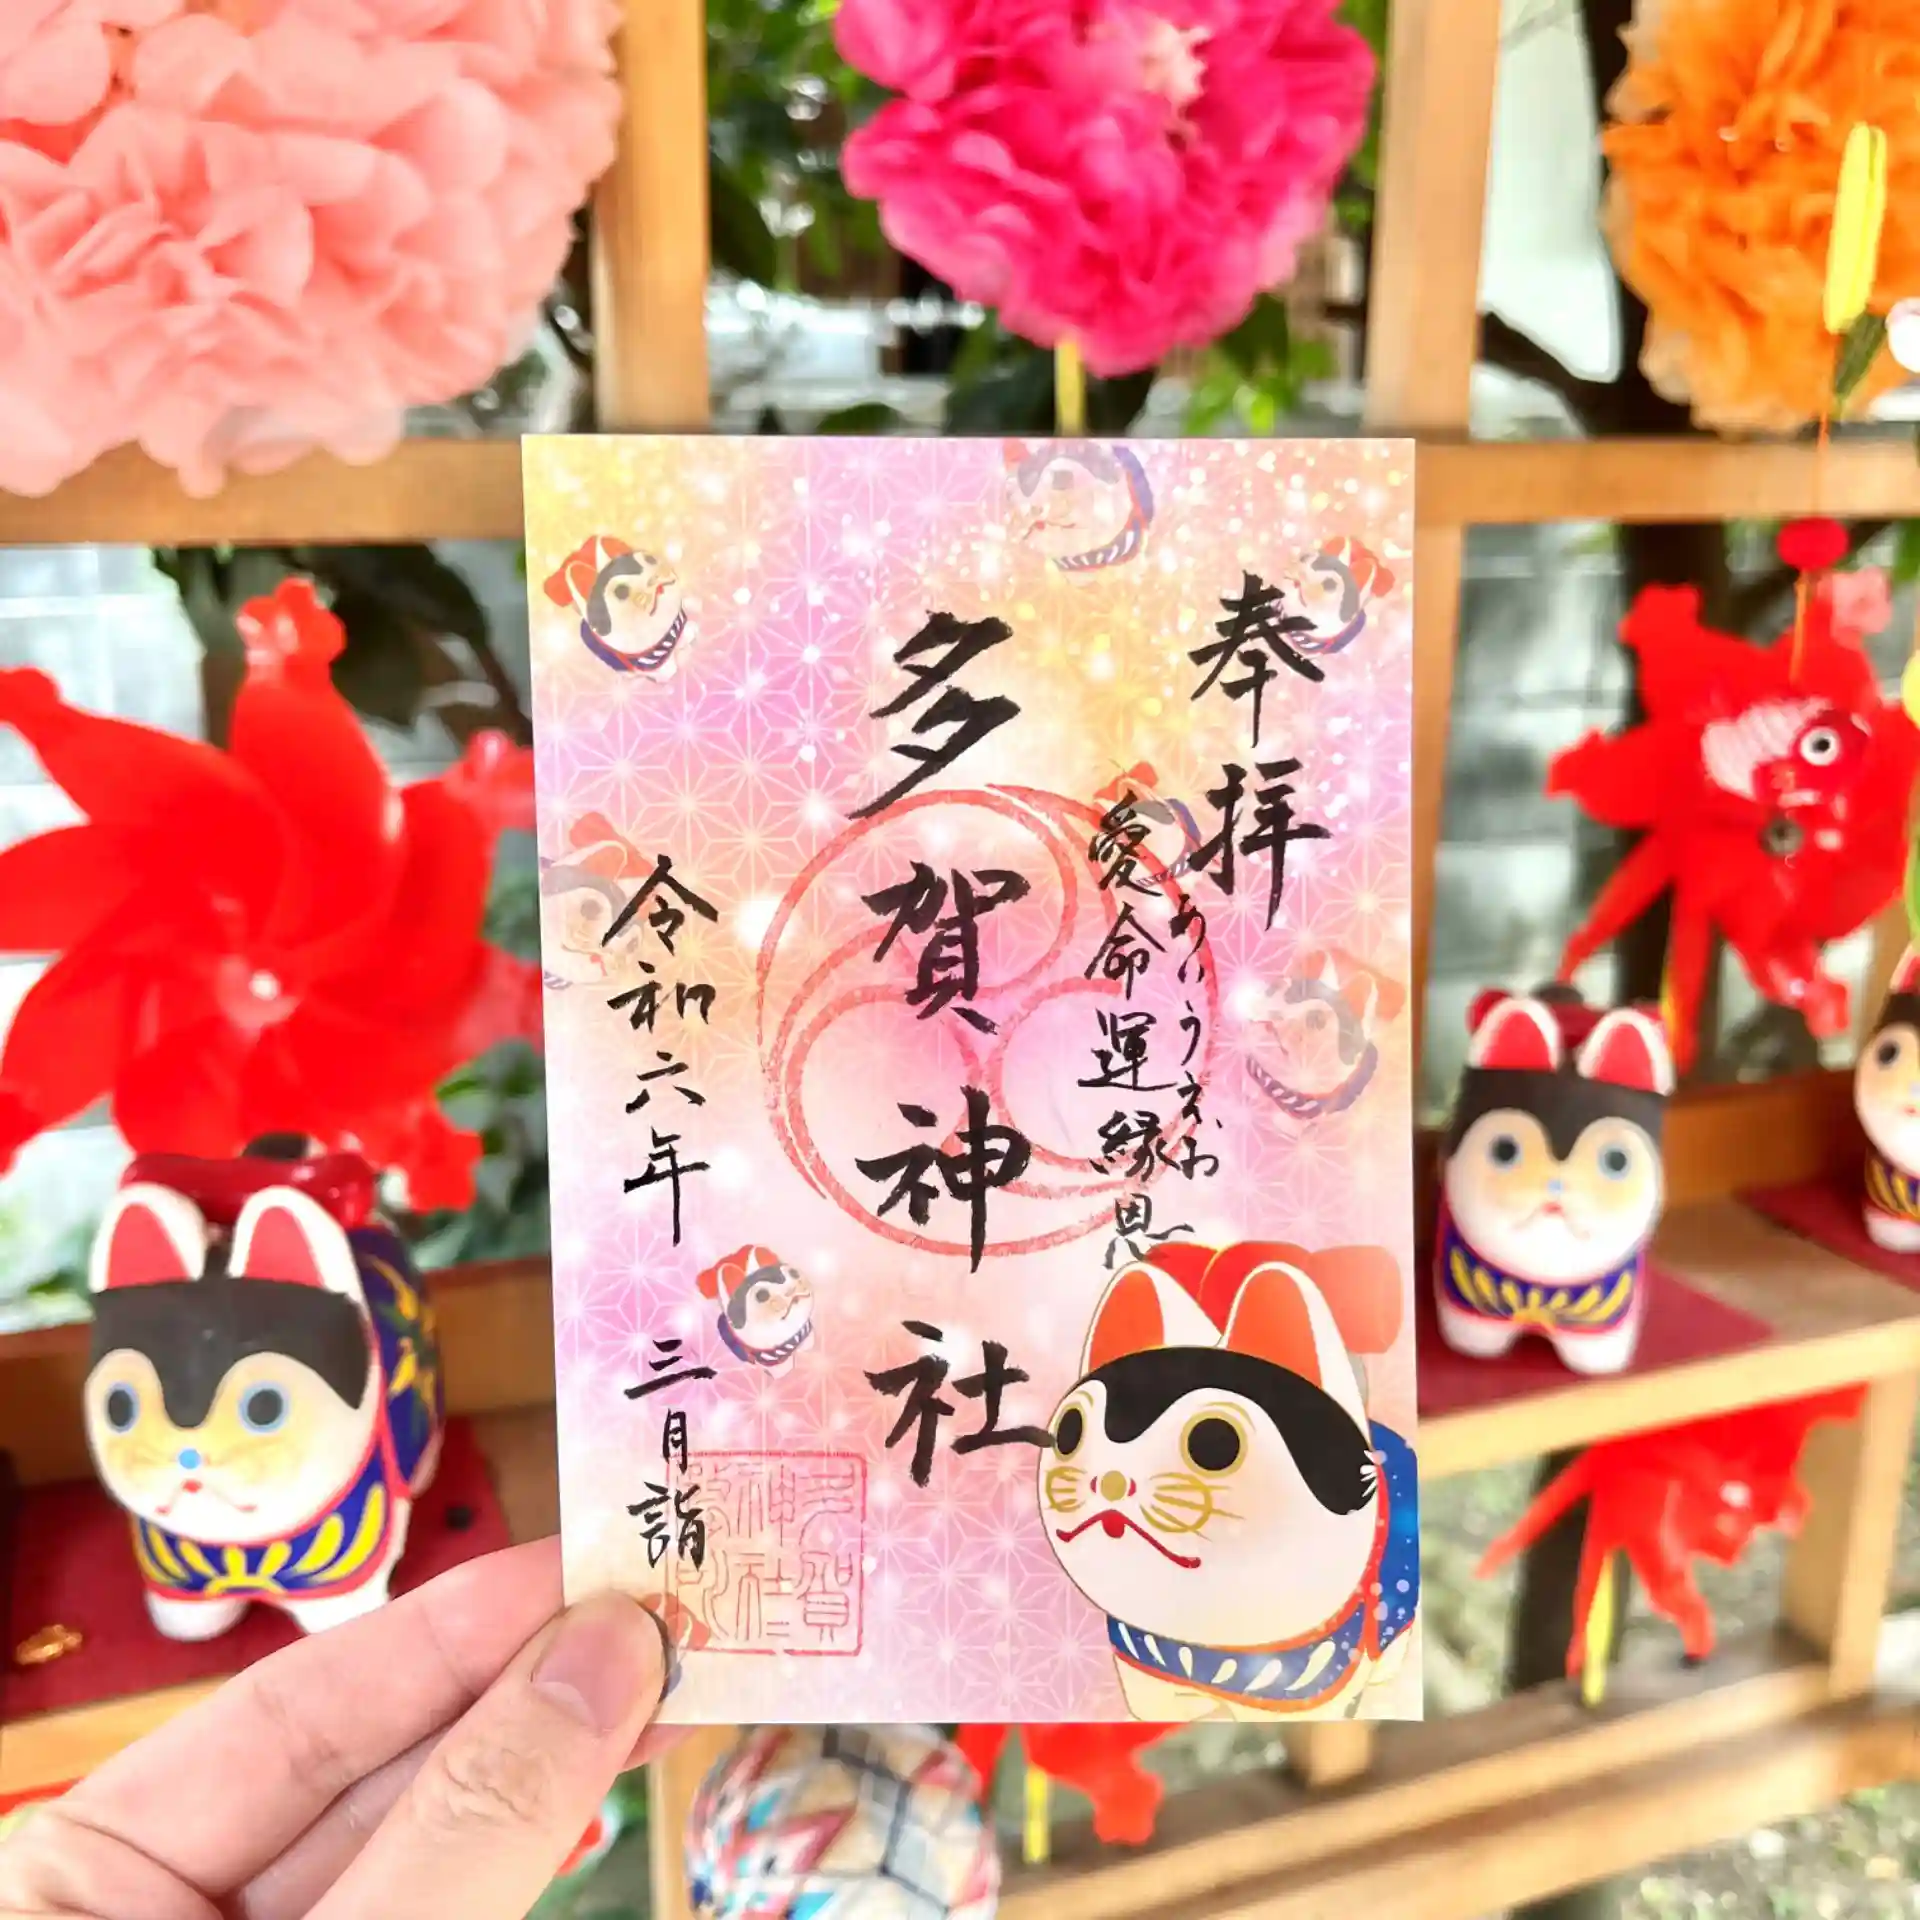 奉拝
あいうえお
愛命運縁恩
多賀神社
令和六年 三月詣